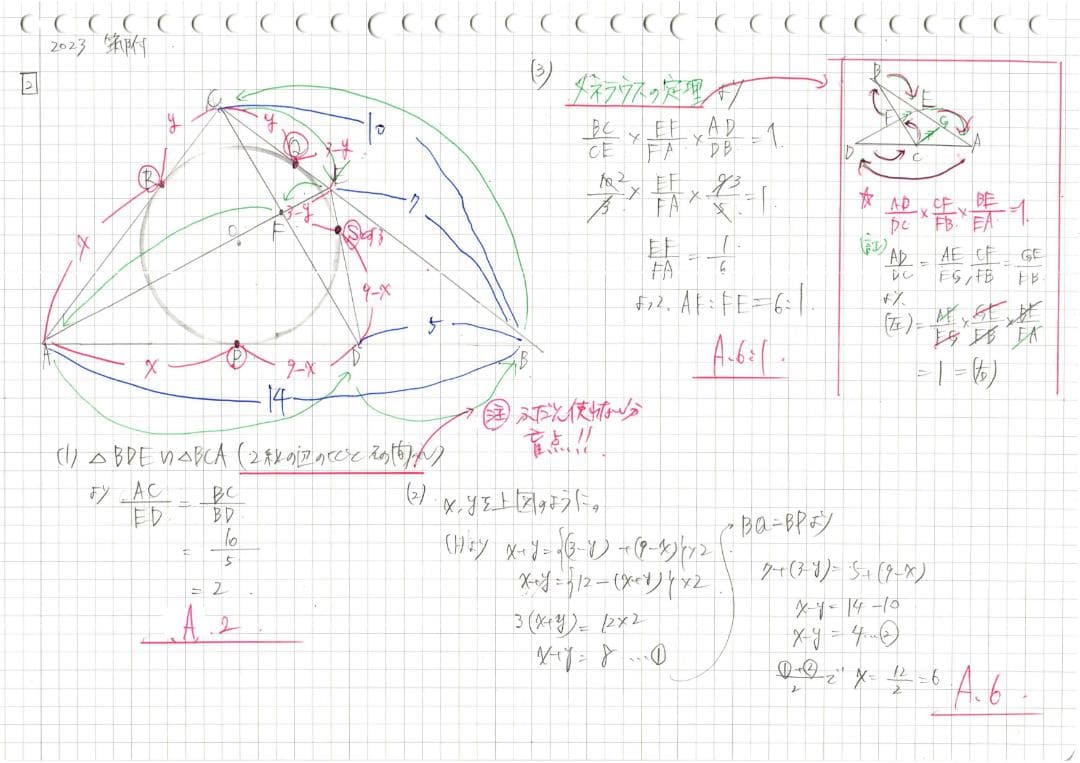 2023 筑附
2
C
y
y
10
Q
3-y
R
E
7
3-y
F
S
x
O
9-x
5
A
P
D
B
x
9-x
14
(1) △BDE∽△BCA (2組の辺の比とその間の∠)
より AC/ED = BC/BD
= 10/5
= 2
A. 2
注 ふだん使わない分
盲点!!
(2) x, yを上図のように。
(1)より x+y={(3-y)+(9-x)}×2
x+y={12-(x+y)}×2
3(x+y)=12×2
x+y=8 …①
BQ=BPより
7+(3-y)=5+(9-x)
x-y=14-10
x-y=4…②
①+②/2 で x=12/2=6
A. 6
(3) メネラウスの定理より
BC/CE × EF/FA × AD/DB = 1.
10 2/3 × EF/FA × 9 3/5 = 1.
EF/FA = 1/6
よって, AF:FE=6:1.
A. 6:1.
B
E
F
G
D
C
A
☆ AD/DC × CF/FB × BE/EA = 1.
(証) AD/DC = AE/EG, CF/FB = GE/EB
より
(左) = AE/EG × GE/EB × BE/EA
= 1 = (右)